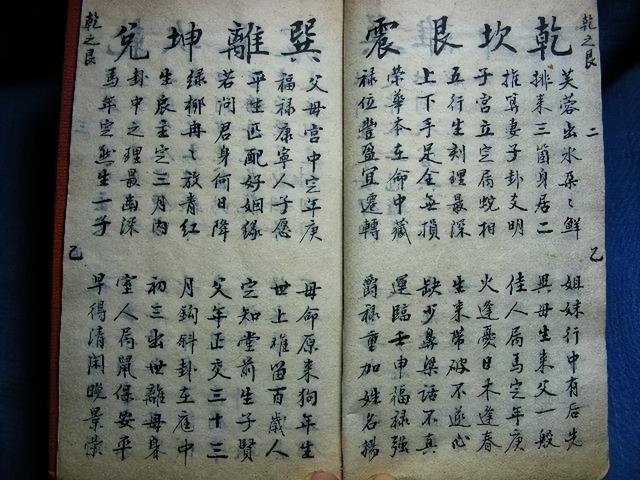 乾之艮
二
乙
乾坎艮震
芙蓉出水朵〻鮮
姐妹行中有后先
排来三箇身居二
異母生来父一般
推寫妻子卦爻明
佳人局馬定年庚
子宮立定局蛻相
火逢憂日禾逢春
五行生刻理最深
生来帶破不遂心
上下手足全無損
缺少鼻梁話不真
榮華本在命中藏
運臨壬申福禄強
禄位豐盈宜遷轉
爵禄重加姓名揚
巽離坤兌
父母宫中定年庚
母命原来狗年生
福禄康寧人子愿
世上难留百歲人
平生匹配好姻緣
定知堂前生子賢
若问君身何日降
父年正交三十三
绿柳冉〻放青红
月鈎斜卦在庭中
生辰主定三月内
初三出世離母身
卦中之理最幽深
室人局鼠保安平
馬年定然生一子
早得清闲晚景荣
乾之艮
乙